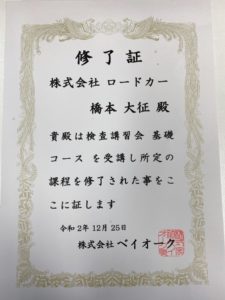 修了証
株式会社 ロードカー
橋本 大征 殿
貴殿は検査講習会 基礎
コース を受講し所定の
課程を修了された事をこ
こに証します
令和 2年 12月 25日
株式会社 ベイオーク